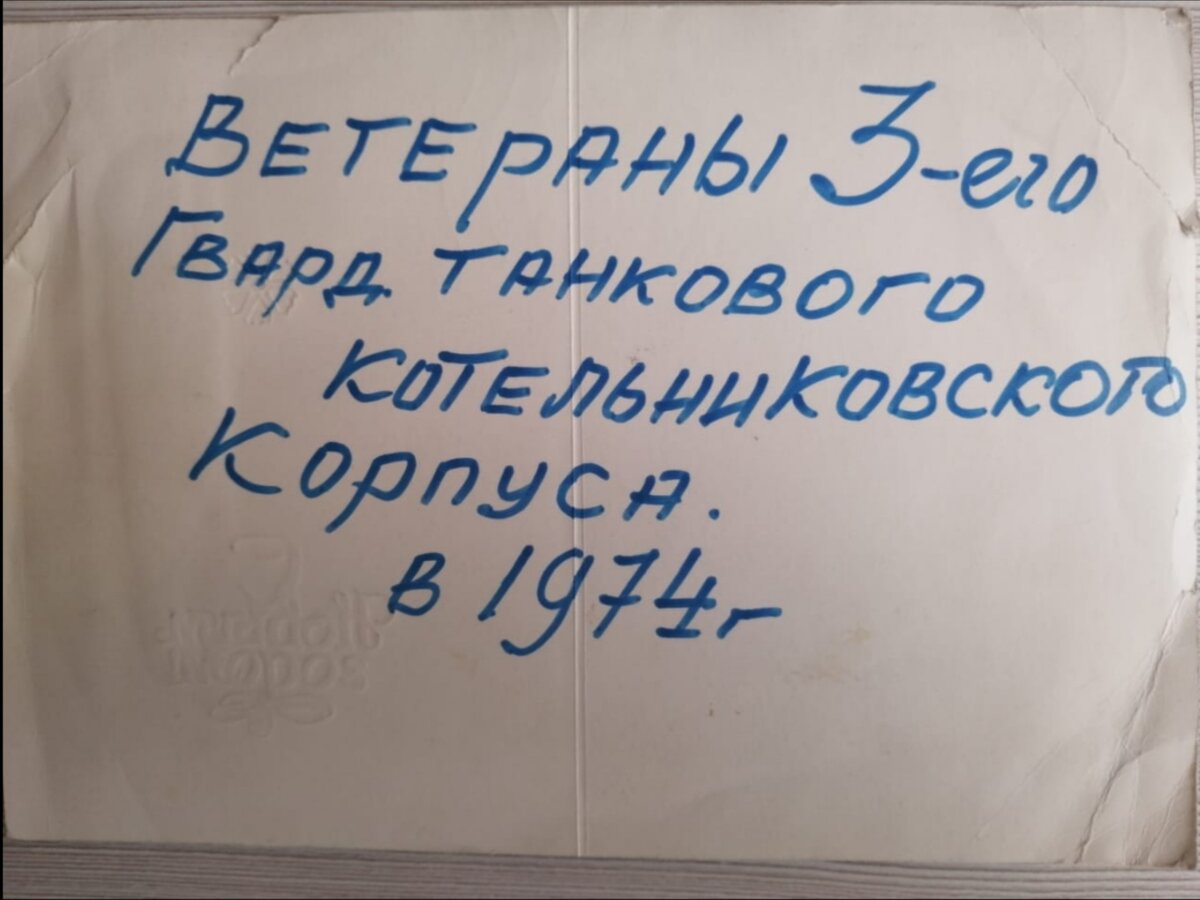 Ветераны 3-его
Гвард. танкового
Котельниковского
Корпуса.
в 1974г
Новым
годом